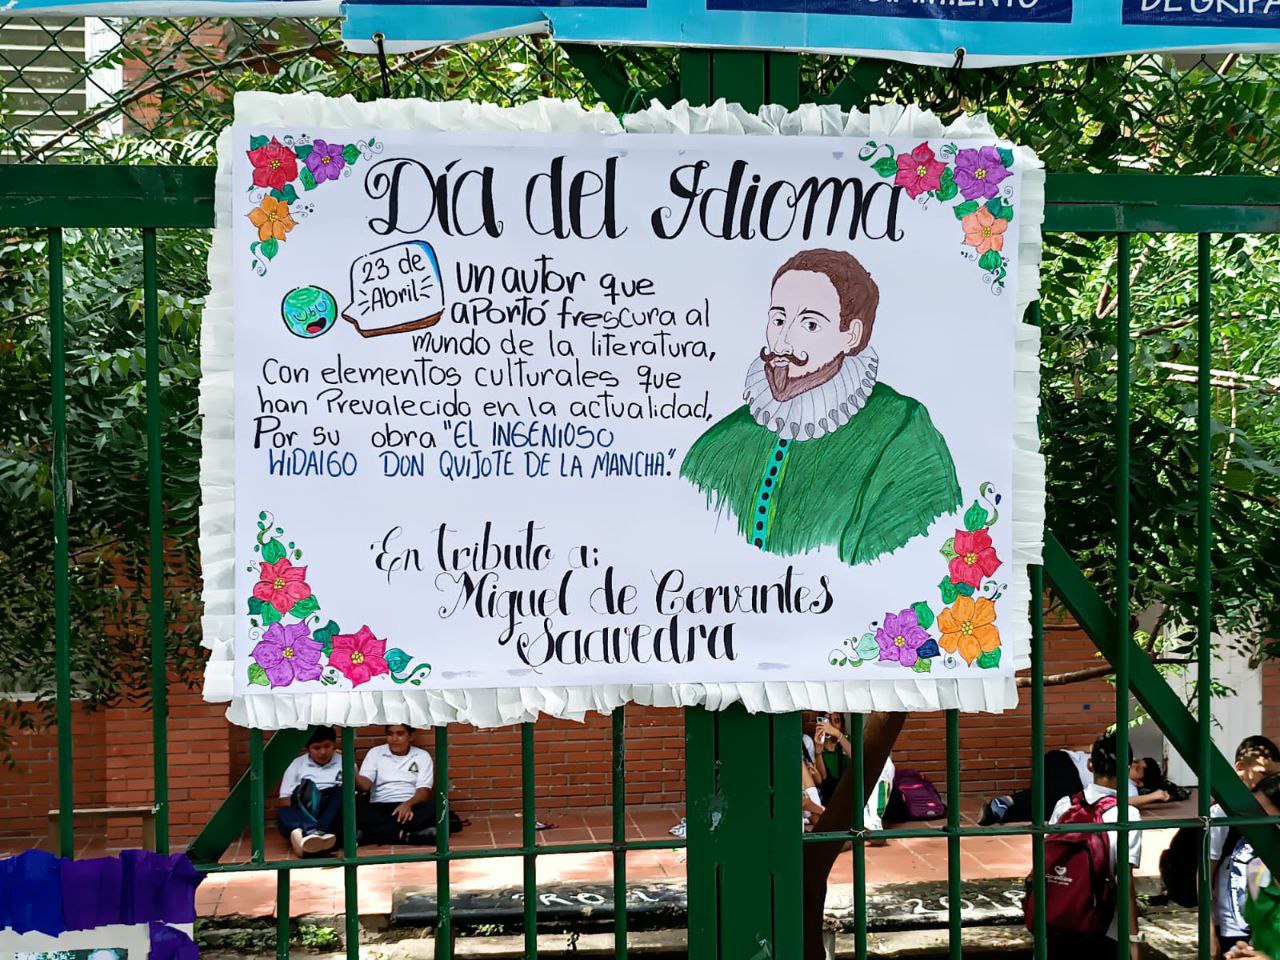 DE GRIPA
Día del Idioma
23 de
Abril
un autor que
aportó frescura al
mundo de la literatura,
Con elementos culturales que
han Prevalecido en la actualidad,
Por su obra "EL INGENIOSO
HIDALGO DON QUIJOTE DE LA MANCHA."
En tributo a:
Miguel de Cervantes
Saavedra